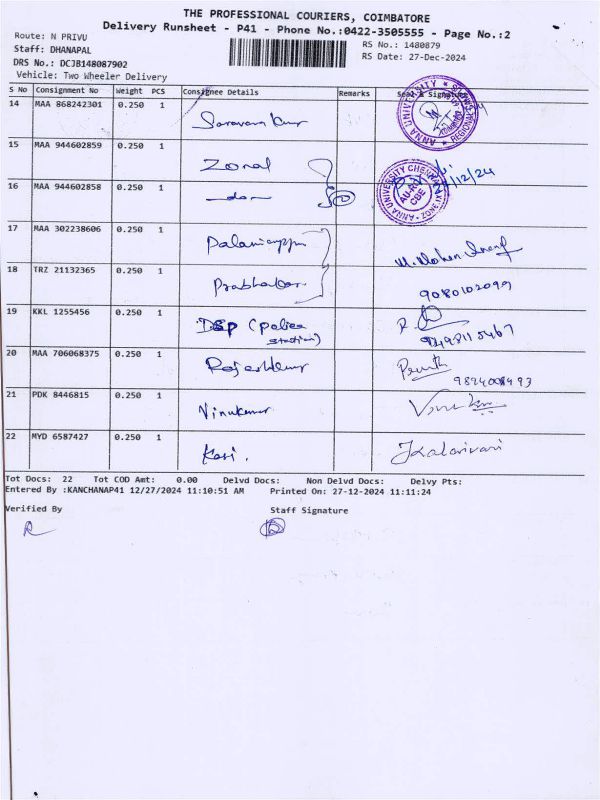 THE PROFESSIONAL COURIERS, COIMBATORE
Delivery Runsheet - P41 - Phone No.:0422-3505555 - Page No.:2
Route: N PRIVU
RS No.: 1480879
Staff: DHANAPAL
RS Date: 27-Dec-2024
DRS No.: DCJB148087902
Vehicle: Two Wheeler Delivery
S No Consignment No Weight PCS Consignee Details Remarks Seal & Signature
14 MAA 868242301 0.250 1 Saravana Kumar
ANNA UNIVERSITY REGIONAL
15 MAA 944602859 0.250 1 Zonal
ANNA UNIVERSITY CHENNAI ZONE
CBE
27/12/24
16 MAA 944602858 0.250 1 -do- 2
17 MAA 302238606 0.250 1 Palaniappan
18 TRZ 21132365 0.250 1 Prabhakar 9080102099
19 KKL 1255456 0.250 1 DSP (police station)
20 MAA 706068375 0.250 1 Rajeshkumar
21 PDK 8446815 0.250 1 Vinukumar
22 MYD 6587427 0.250 1 Kasi.
Tot Docs: 22 Tot COD Amt: 0.00 Delvd Docs: Non Delvd Docs: Delvy Pts:
Entered By :KANCHANAP41 12/27/2024 11:10:51 AM Printed On: 27-12-2024 11:11:24
Verified By Staff Signature